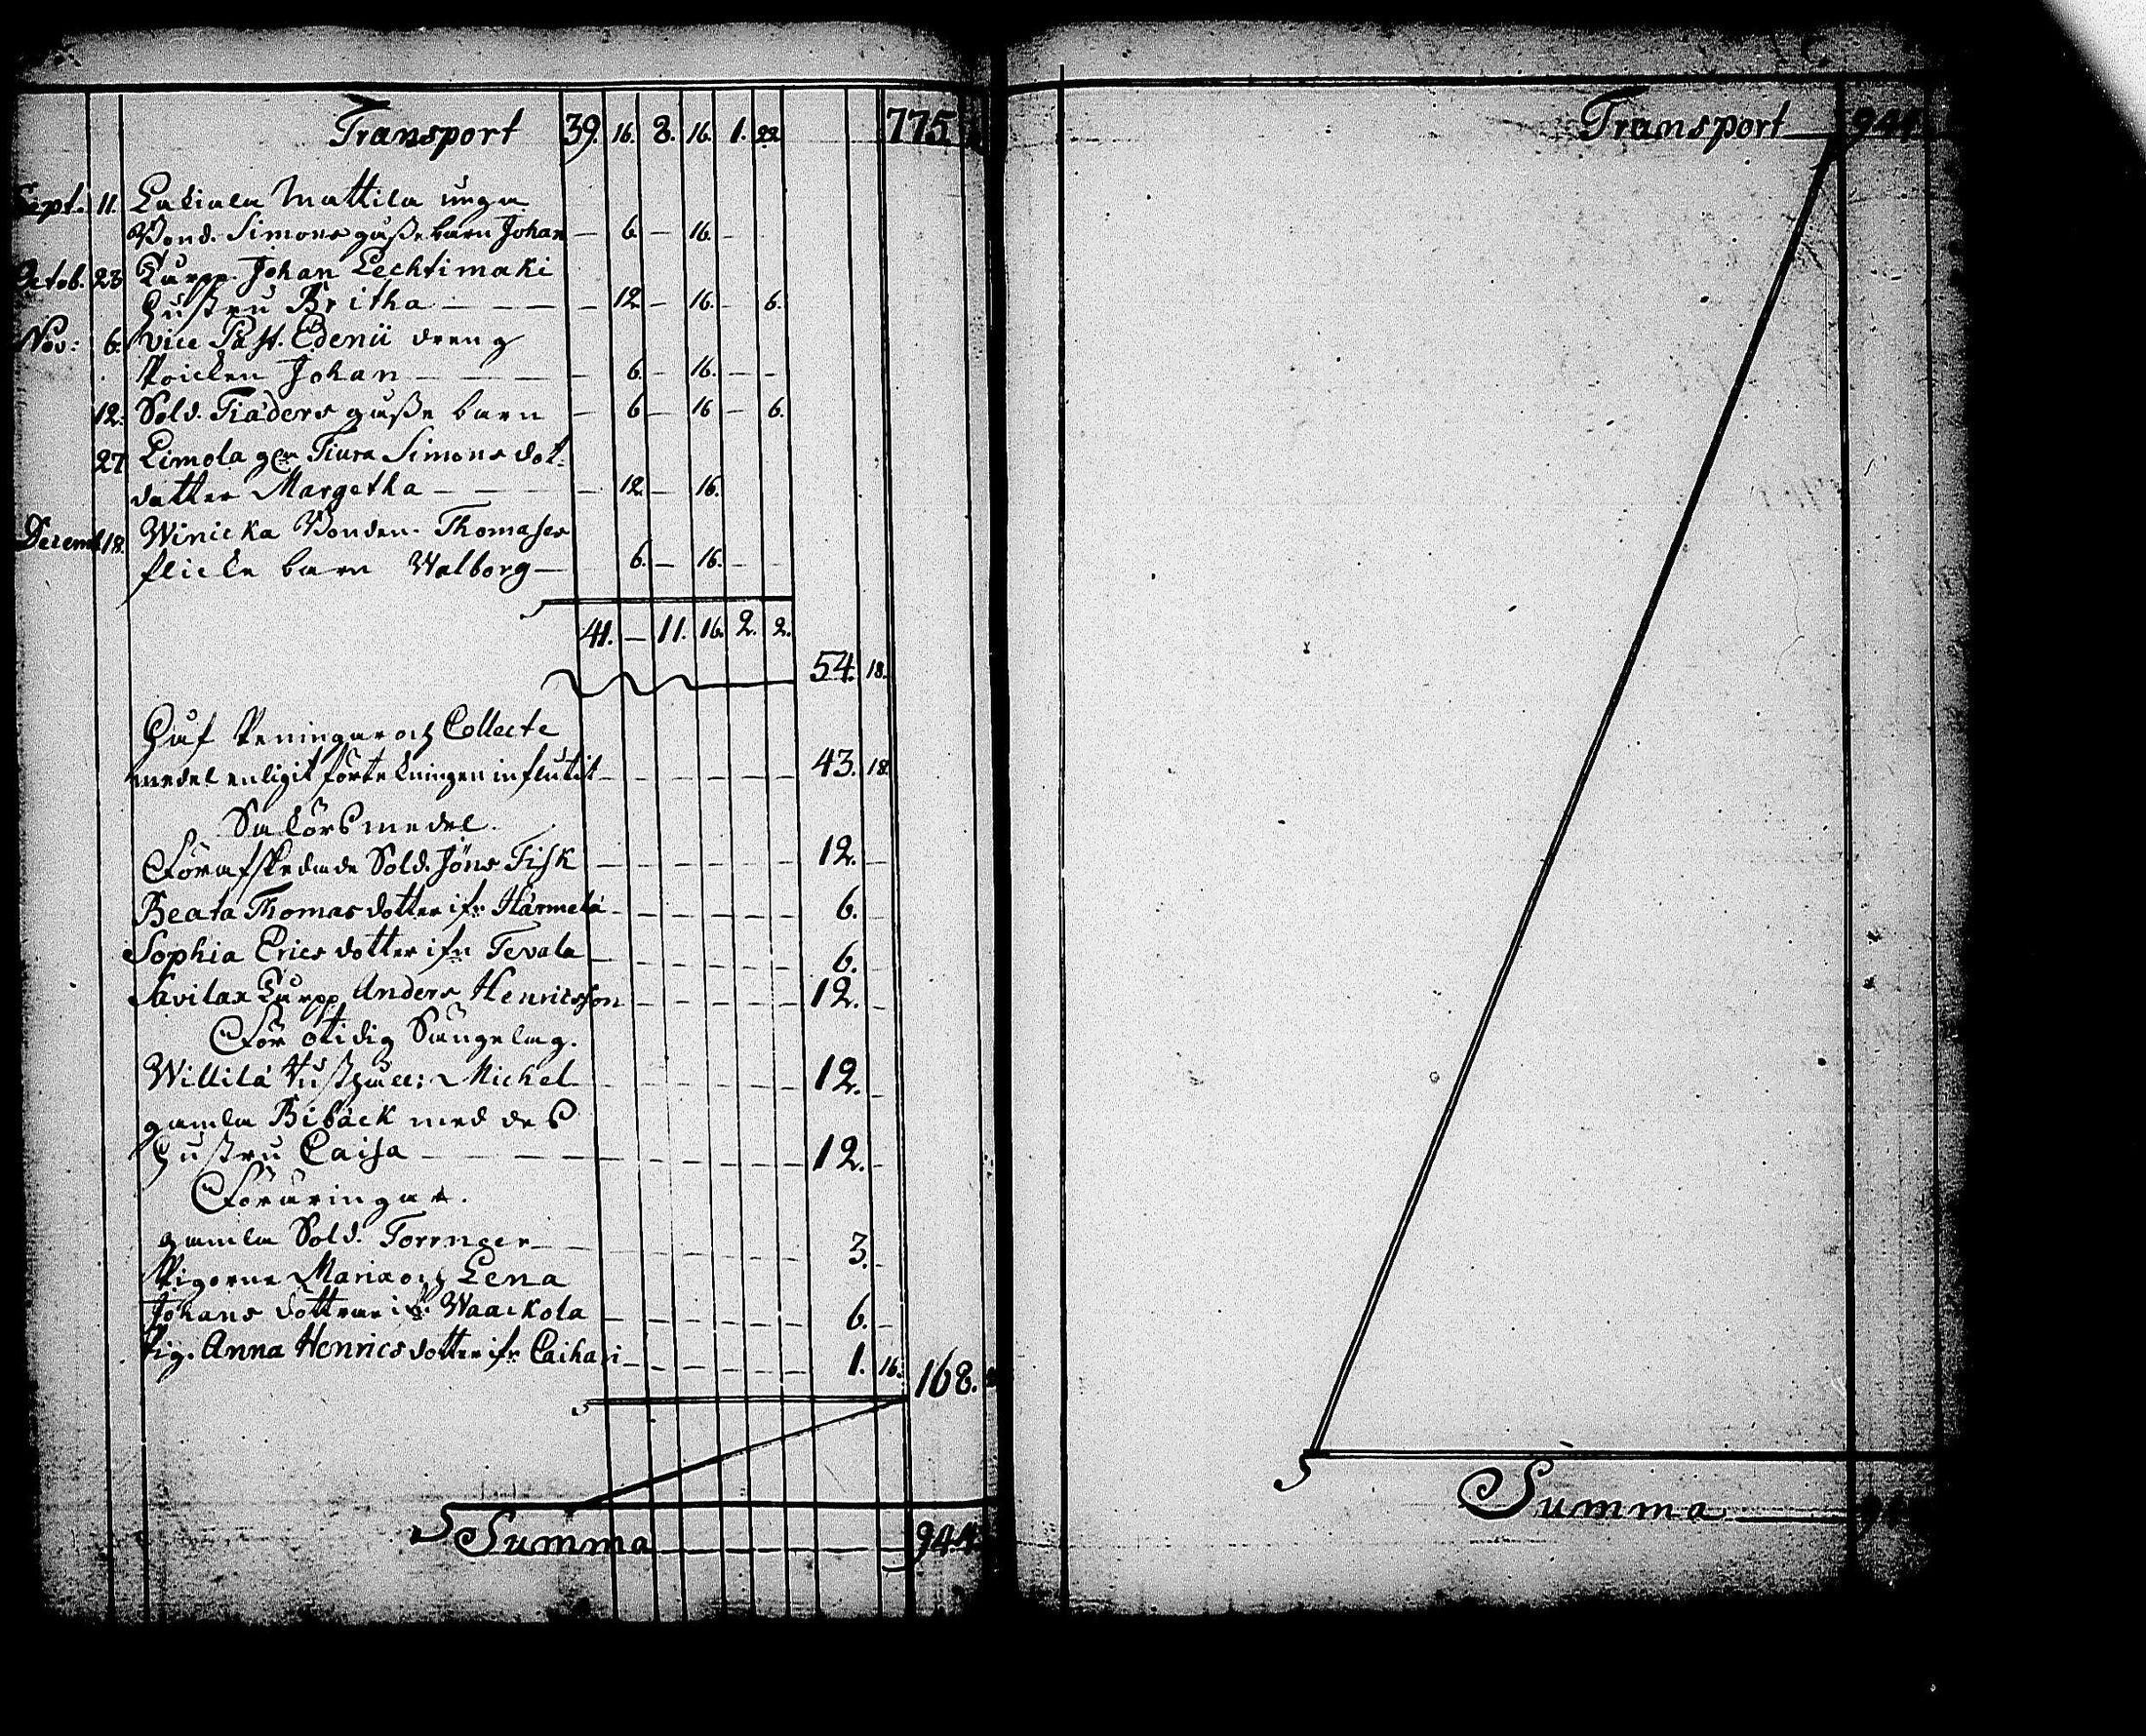 Transport 39. 16. 8. 16. 1. 22. 775.
Sept. 11. Lakiala Mattila unga
Bond. Simons gåsse barn Johan — 6. — 16. —
Octob. 23. Torpp. Johan Lechtimäki
Hustru Britha — 12. — 16. — 6.
Nov: 6. Vice Past. Edenii dreng
Poicken Johan — 6. — 16. — —
12. Sold. Träders gåsse barn — 6. — 16. — 6.
27. Limola Simons dot:
dotter Margetha — 12. — 16.
Decemb. 18. Winicka Bonden Thomases
flicke barn Walborg — 6. — 16. — —
41. — 11. 16. 2. 2.
54. 18.
Håf Peningar och Collecte
medel enligit förtekningen influtit 43. 18.
Saköres medel.
För afskedade Sold. Jöns Fisk 12. —
Beata Thomas dotter ifr. Härmelä 6. —
Sophia Erics dotter ifr. Tevala 6. —
Savilax Torpp. Anders Henricsson 12. —
För otidig Sängelag.
Willilä Michel 12. —
gamla Bibäck med des
Hustru Caisa 12. —
Föräringar.
gamla Sold. 3. —
Pigorne Maria och Lena
Johans dottrar ifr. Waackola 6. —
Pig. Anna Henrics dotter ifr. Caihari 1. 16. 168.
Summa 944.
Transport 944.
Summa